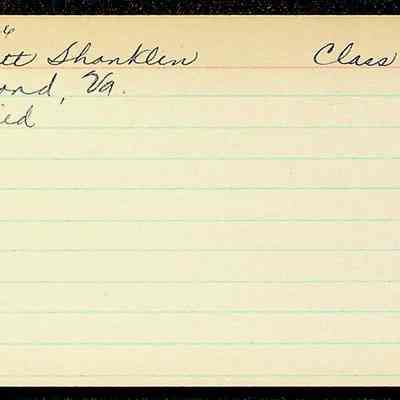 tt Shanklin Class
ond, Va.
ied